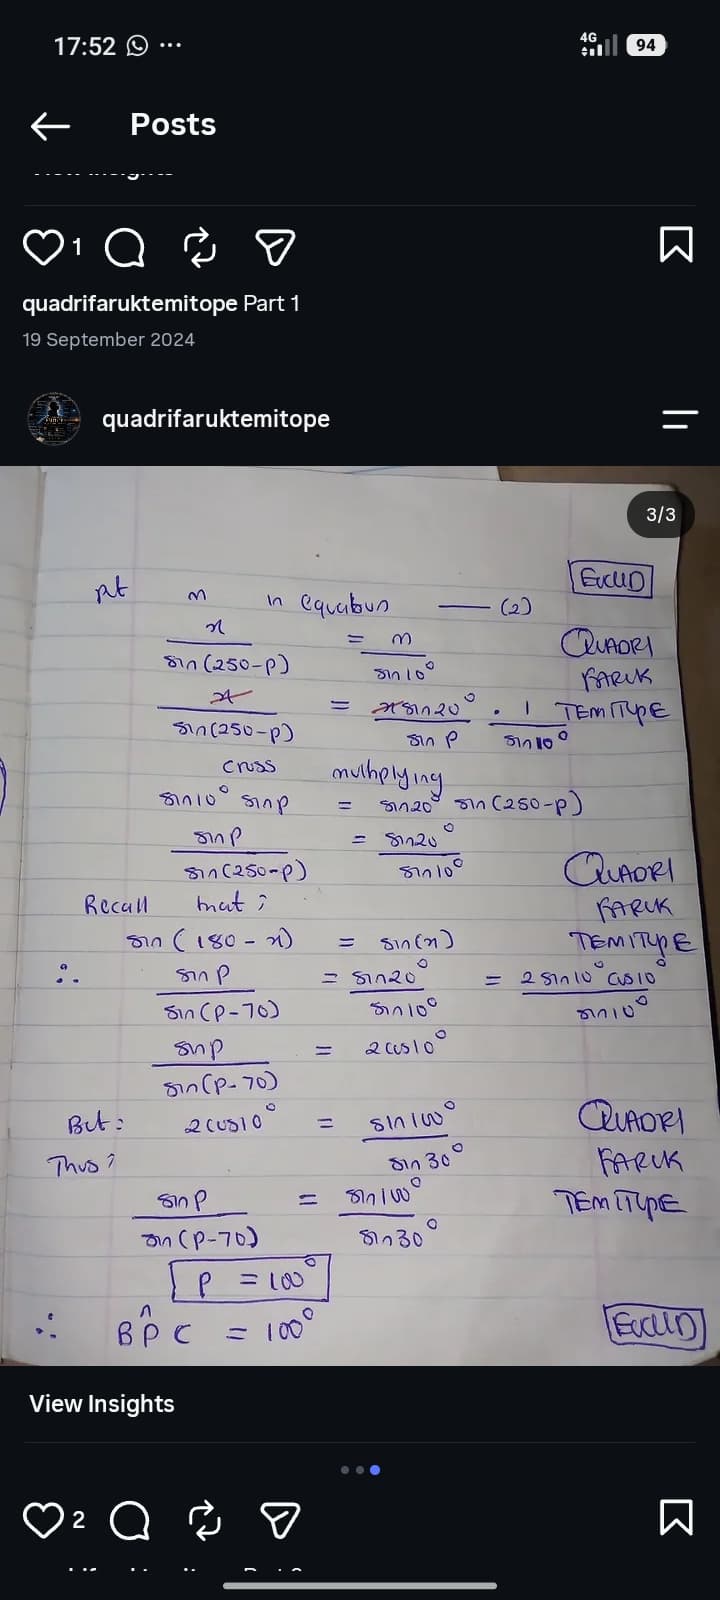 17:52
4G
94
Posts
1
quadrifaruktemitope Part 1
19 September 2024
quadrifaruktemitope
3/3
EUCLID
put m in equation — (2)
x/sin(250-p) = m/sin10°
QUADRI
FARUK
TEMITYPE
x/sin(250-p) = x sin20°/sin p . 1/sin10°
cross multiplying
sin10° sinp = sin20° sin(250-p)
sinp/sin(250-p) = sin20°/sin10°
QUADRI
FARUK
TEMITYPE
Recall that;
sin(180-x) = sin(x)
∴ sinp/sin(p-70) = sin20°/sin10° = 2sin10°cos10°/sin10°
sinp/sin(p-70) = 2cos10°
But: 2cos10° = sin100°/sin30°
QUADRI
FARUK
TEMITYPE
Thus;
sinp/sin(p-70) = sin100°/sin30°
p = 100°
∴ BP̂C = 100°
EUCLID
View Insights
2